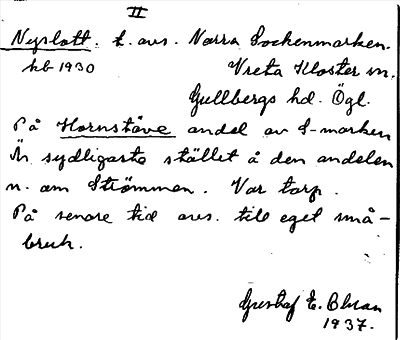 II
Nyslott. t. avs. Norra Sockenmarken.
kb 1930 Vreta Kloster sn.
Gullbergs hd. Ögl.
På Hornstäve andel av S-marken
Är sydligaste stället å den andelen
n. om Strömmen. Var torp.
På senare tid avs. till eget små-
bruk.
Gustaf E. Blman
1937.